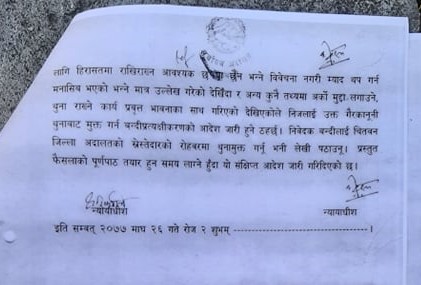 लागि हिरासतमा राखिराख्न आवश्यक छ वा छैन भन्ने विवेचना नगरी म्याद थप गर्न
मनासिव भएको भन्ने मात्र उल्लेख गरेको देखिँदा र अन्य कुनै तथ्यमा अर्को मुद्दा लगाउने,
थुना राख्ने कार्य प्रवृत्त भावनाका साथ गरिएको देखिएकोले निजलाई उक्त गैरकानूनी
थुनाबाट मुक्त गर्न बन्दीप्रत्यक्षीकरणको आदेश जारी हुने ठहर्छ। निवेदक बन्दीलाई चितवन
जिल्ला अदालतको स्रेस्तेदारको रोहबरमा थुनामुक्त गर्नु भनी लेखी पठाउनू। प्रस्तुत
फैसलाको पूर्णपाठ तयार हुन समय लाग्ने हुँदा यो संक्षिप्त आदेश जारी गरिदिएको छ।
न्यायाधीश न्यायाधीश
इति सम्वत् २०७७ माघ २६ गते रोज २ शुभम् ------------------------------।